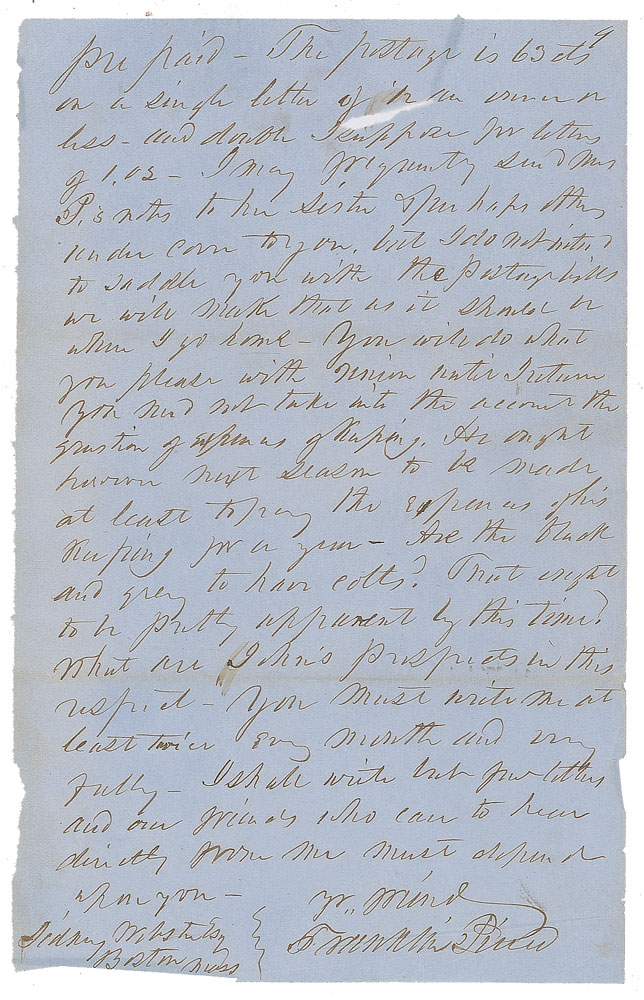 9
pre paid – The postage is 63 cts
on a single letter of 1/2 an ounce or
less – and double I suppose for letters
of 1. oz – I may frequently send Mrs
P.'s notes to her Sister & perhaps others
under cover to you, but I do not intend
to saddle you with the Postage bills
we will make that as it should be
when I go home – You will do what
you please with Union until I return
You need not take into the account the
question of expenses of keeping. He ought
however next season to be made
at least to pay the expenses of his
Keeping for a year – Are the black
and grey to have colts? That ought
to be pretty apparent by this time?
What are John's prospects in this
respect – You must write me at
least twice every month and very
fully – I shall write but few letters
and our friends who care to hear
directly from me must depend
upon you –
yr. friend
Franklin Pierce
Sidney Webster Esq
Boston Mass